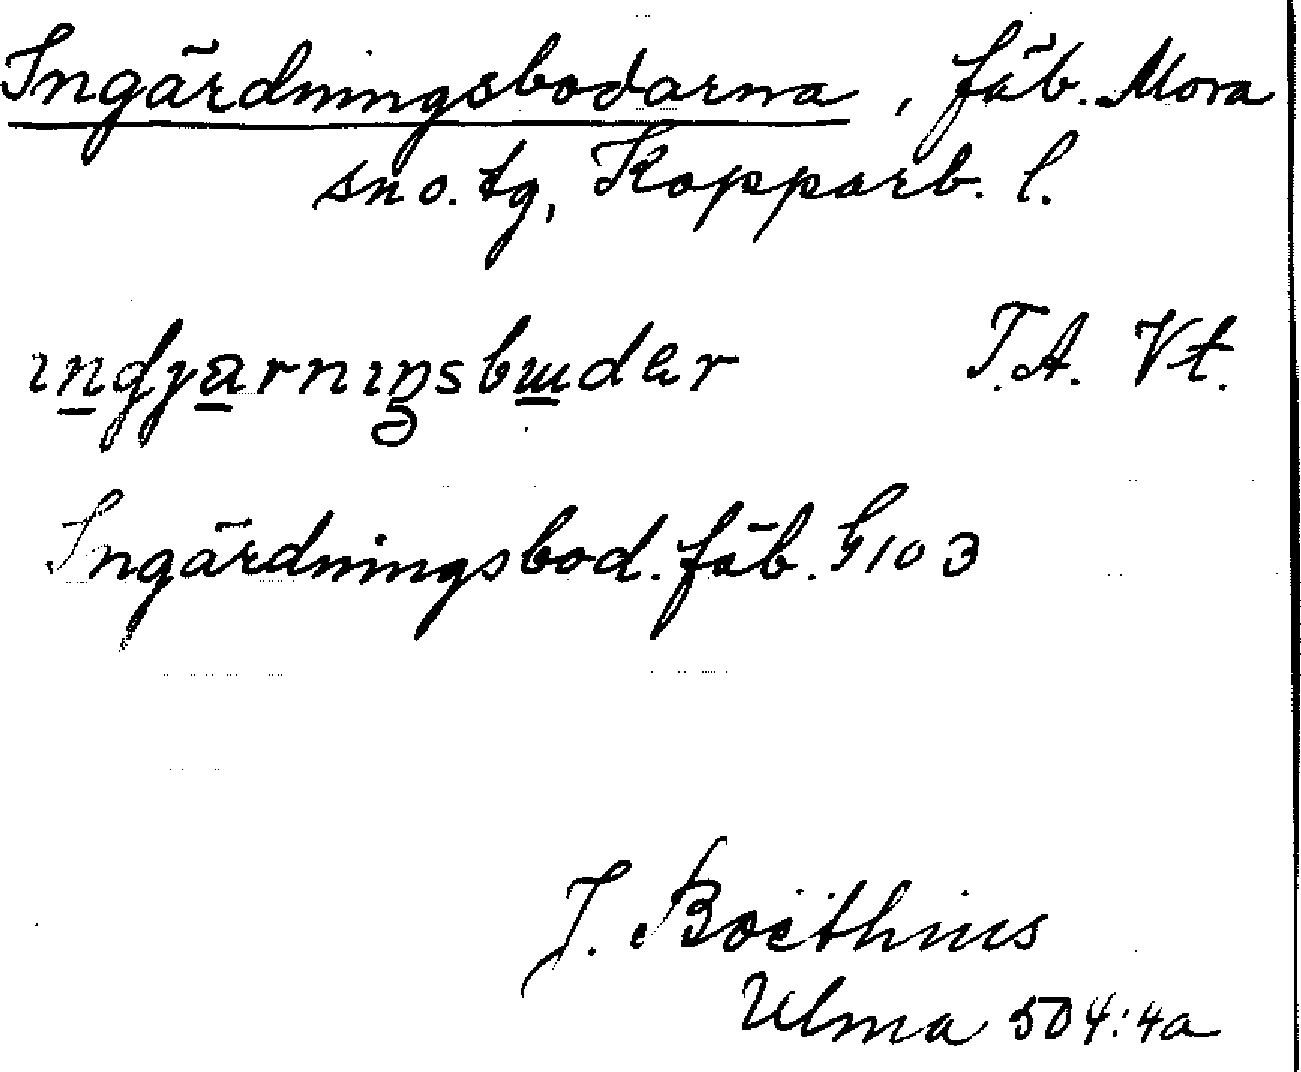 Ingärdningsbodarna, fäb. Mora
sn o. tg, Kopparb. l.
T.A. Vt.
Ingärdningsbod. fäb. G103
J. Boëthius
Ulma 504:4a